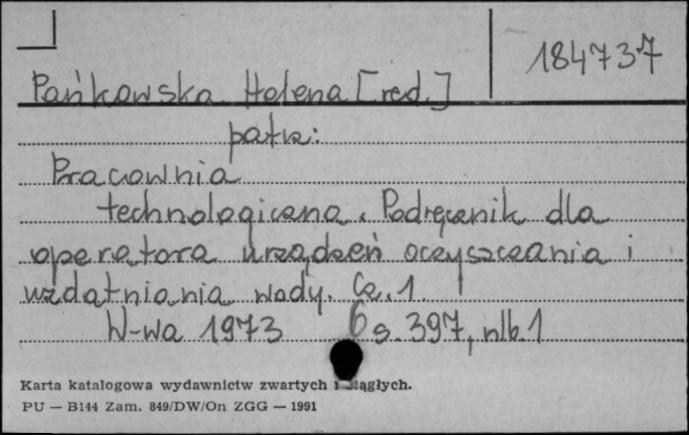 184737
Pańkowska Helena [red.]
patrz:
Pracownia
technologiczna. Podręcznik dla
operatora urządzeń oczyszczania i
uzdatniania wody. Cz. 1.
W-wa 1973 s. 397, nlb. 1
Karta katalogowa wydawnictw zwartych i ciągłych.
PU — B144 Zam. 849/DW/On ZGG — 1991